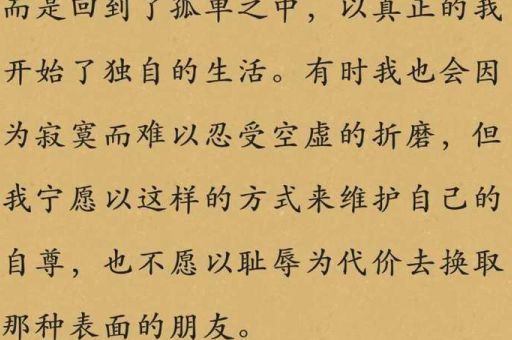 而是回到了孤单之中，以真正的我
开始了独自的生活。有时我也会因
为寂寞而难以忍受空虚的折磨，但
我宁愿以这样的方式来维护自己的
自尊，也不愿以耻辱为代价去换取
那种表面的朋友。